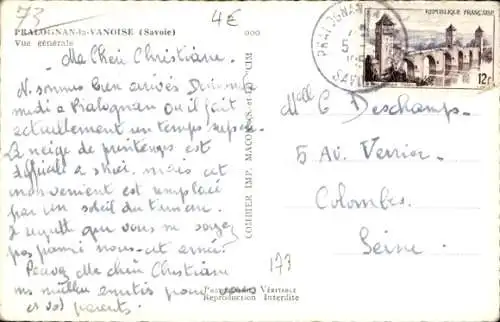 73
4€
PRALOGNAN-la-VANOISE (Savoie)
Vue générale
Ma Chère Christiane.
N. sommes bien arrivés Dimanche
midi à Pralognan Où il fait
actuellement un temps superbe.
La neige de printemps est
difficile à skier. mais cet
inconvenient est remplacé
par un soleil du tonnerre.
Je regrette que vous ne soyez
pas parmi nous cet année.
Ma chère Christiane
pour vous
et vos parents.
COMBIER IMP. MACON (S.-et-L.) "CIM"
PRALOGNAN
5
SAV
REPUBLIQUE FRANÇAISE
12F
Melle C Deschamps.
5 Av. Verrier.
Colombes.
Seine.
173
Photographie Véritable
Reproduction Interdite